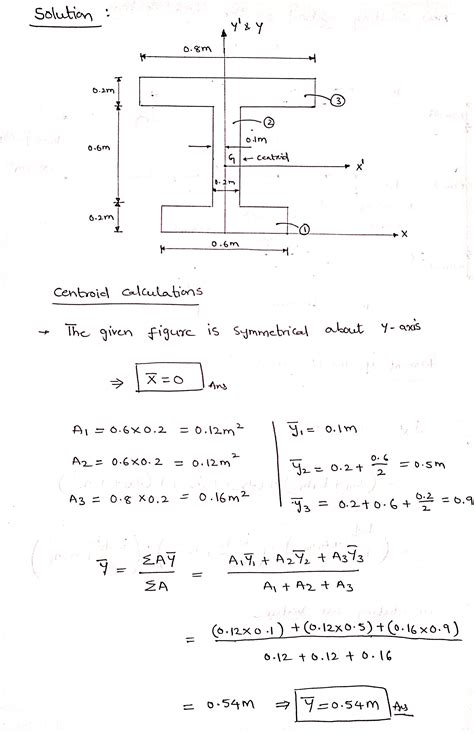 Solution :
Y' & Y
0.8m
0.2m
③
②
0.1m
0.6m
G ← centroid
X'
0.2m
0.2m
①
X
0.6m
Centroid calculations
→ The given figure is symmetrical about Y-axis
⇒ X̅ = 0 Ans
A1 = 0.6×0.2 = 0.12m² | y̅1 = 0.1m
A2 = 0.6×0.2 = 0.12m² | y̅2 = 0.2 + 0.6/2 = 0.5m
A3 = 0.8×0.2 = 0.16m² | y̅3 = 0.2+0.6+0.2/2 = 0.9
Y̅ = ΣAY̅/ΣA = (A1Y̅1 + A2Y̅2 + A3Y̅3)/(A1 + A2 + A3)
= ((0.12×0.1)+(0.12×0.5)+(0.16×0.9))/(0.12 + 0.12 + 0.16)
= 0.54m ⇒ Y̅ = 0.54m Ans